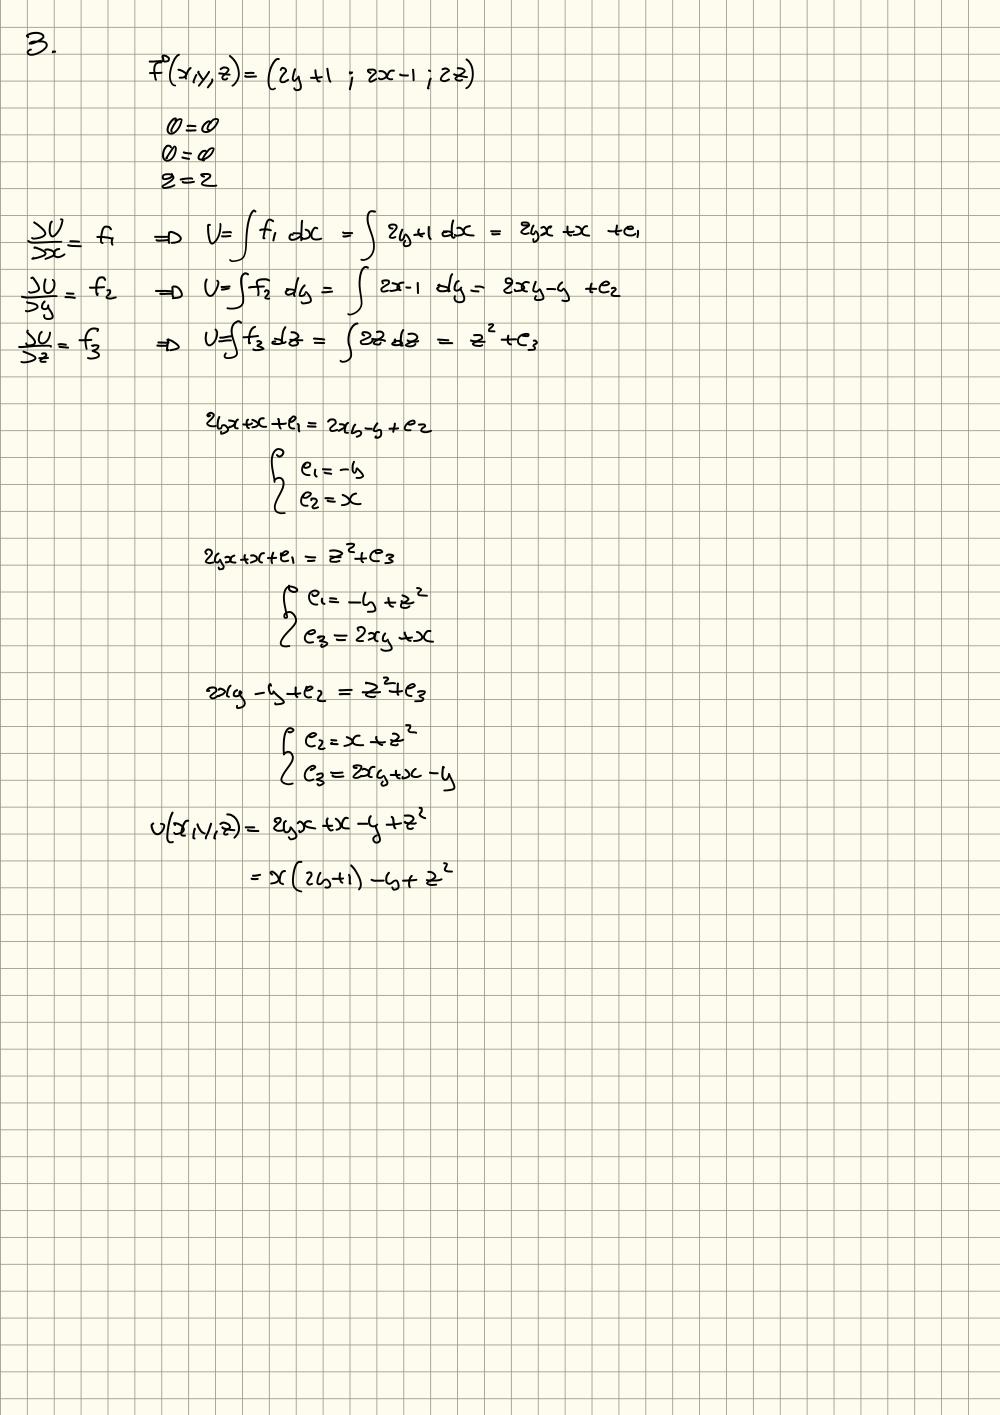 3.
F(x,y,z) = (2y+1 ; 2x-1 ; 2z)
0 = 0
0 = 0
2 = 2
∂U/∂x = f₁ ⇒ U = ∫ f₁ dx = ∫ 2y+1 dx = 2yx + x + c₁
∂U/∂y = f₂ ⇒ U = ∫ f₂ dy = ∫ 2x-1 dy = 2xy - y + c₂
∂U/∂z = f₃ ⇒ U = ∫ f₃ dz = ∫ 2z dz = z² + c₃
2yx + x + c₁ = 2xy - y + c₂
{ c₁ = -y
c₂ = x
2yx + x + c₁ = z² + c₃
{ c₁ = -y + z²
c₃ = 2xy + x
2xy - y + c₂ = z² + c₃
{ c₂ = x + z²
c₃ = 2xy + x - y
U(x,y,z) = 2yx + x - y + z²
= x(2y+1) - y + z²